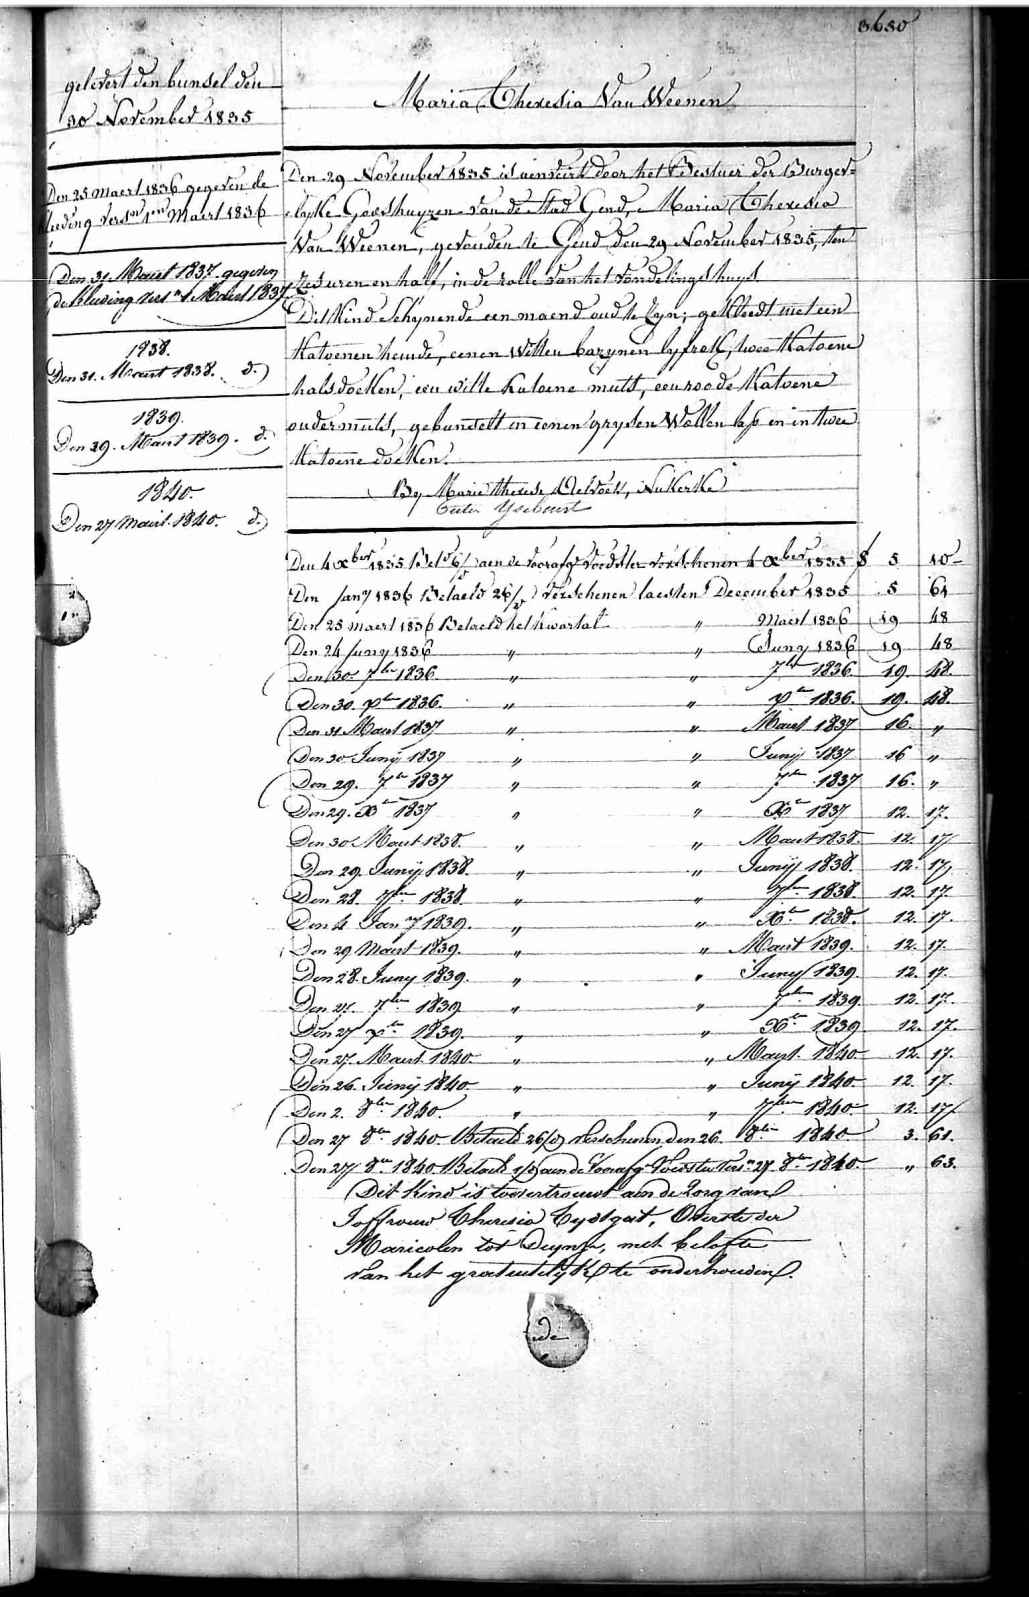 3630
gelevert den bunsel den
30 November 1835
Den 25 maert 1836 gegeven de
kleeding vers.en 1.en Maert 1836
Den 31 Maert 1837. gegeven
de kleeding vers.n 1 Maert 1837
1838.
Den 31. Maert 1838. d.)
1839.
Den 29. Maert 1839. d.)
1840.
Den 27 Maert 1840. d.)
Maria Theresia Van Weenen
Den 29 November 1835 is aenveird door het Bestuer der Burger-
lyke Godshuyzen van de stad Gend, Maria Theresia
Van Weenen, gevonden te Gend, den 29 November 1835, ten
zes uren en half, in de rolle van het vondelingshuys.
Dit kind schynende een maend oud te zyn; gekleedt met een
katoenen hemde, eenen witten bazynen lyfrok, twee katoene
halsdoeken, een witte katoene muts, een roode katoene
ondermuts, gebunselt in eenen grysen wollen lap en in twee
katoene doeken.
By Marie Therese, Nukerke
Den 4 Xber 1835 Bet.d 6/ aen de voorafg.e voedster verschenen 4 Xber 1835 f 5 10
Den Jan.y 1836 Betaeld 26/ verschenen laesten December 1835 5 61
Den 25 maert 1836 Betaeld het kwartal " Maert 1836 19 48
Den 24 Juny 1836 " " Juny 1836 19 48
Den 30 7ber 1836 " " 7ber 1836 19. 48.
Den 30. Xber 1836. " " Xber 1836. 19. 48.
Den 31 Maert 1837 " " Maert 1837 16. "
Den 30 Juny 1837 " " Juny 1837 16 "
Den 29. 7ber 1837 " " 7ber 1837 16. "
Den 29. Xber 1837 " " Xber 1837 12. 17.
Den 30 Maert 1838. " " Maert 1838. 12. 17
Den 29. Juny 1838. " " Juny 1838. 12. 17
Den 28. 7ber 1838. " " 7ber 1838. 12. 17
Den 4 Jan.y 1839. " " Xber 1838. 12. 17.
Den 29 Maert 1839. " " Maert 1839. 12. 17.
Den 28. Juny 1839. " " Juny 1839. 12. 17.
Den 27. 7ber 1839 " " 7ber 1839 12. 17.
Den 27 Xber 1839. " " Xber 1839 12. 17.
Den 27. Maert 1840 " " Maert. 1840 12. 17.
Den 26. Juny 1840. " " Juny 1840. 12. 17.
Den 2. 8ber 1840. " " 7ber 1840 12. 17
Den 27 8ber 1840 Betaeld 26/ verschenen den 26. 8ber 1840 3. 61.
Den 27 8ber 1840 Betaeld 1/ aen de voorafg.e voedster vers.n 27 8ber 1840. " 63.
Dit kind is toevertrouwt aen de zorg van
Joffrouw Theresia Eydtgat, Overste der
Maricolen tot Deynze, met belofte
van het gratuitelyk te onderhouden.